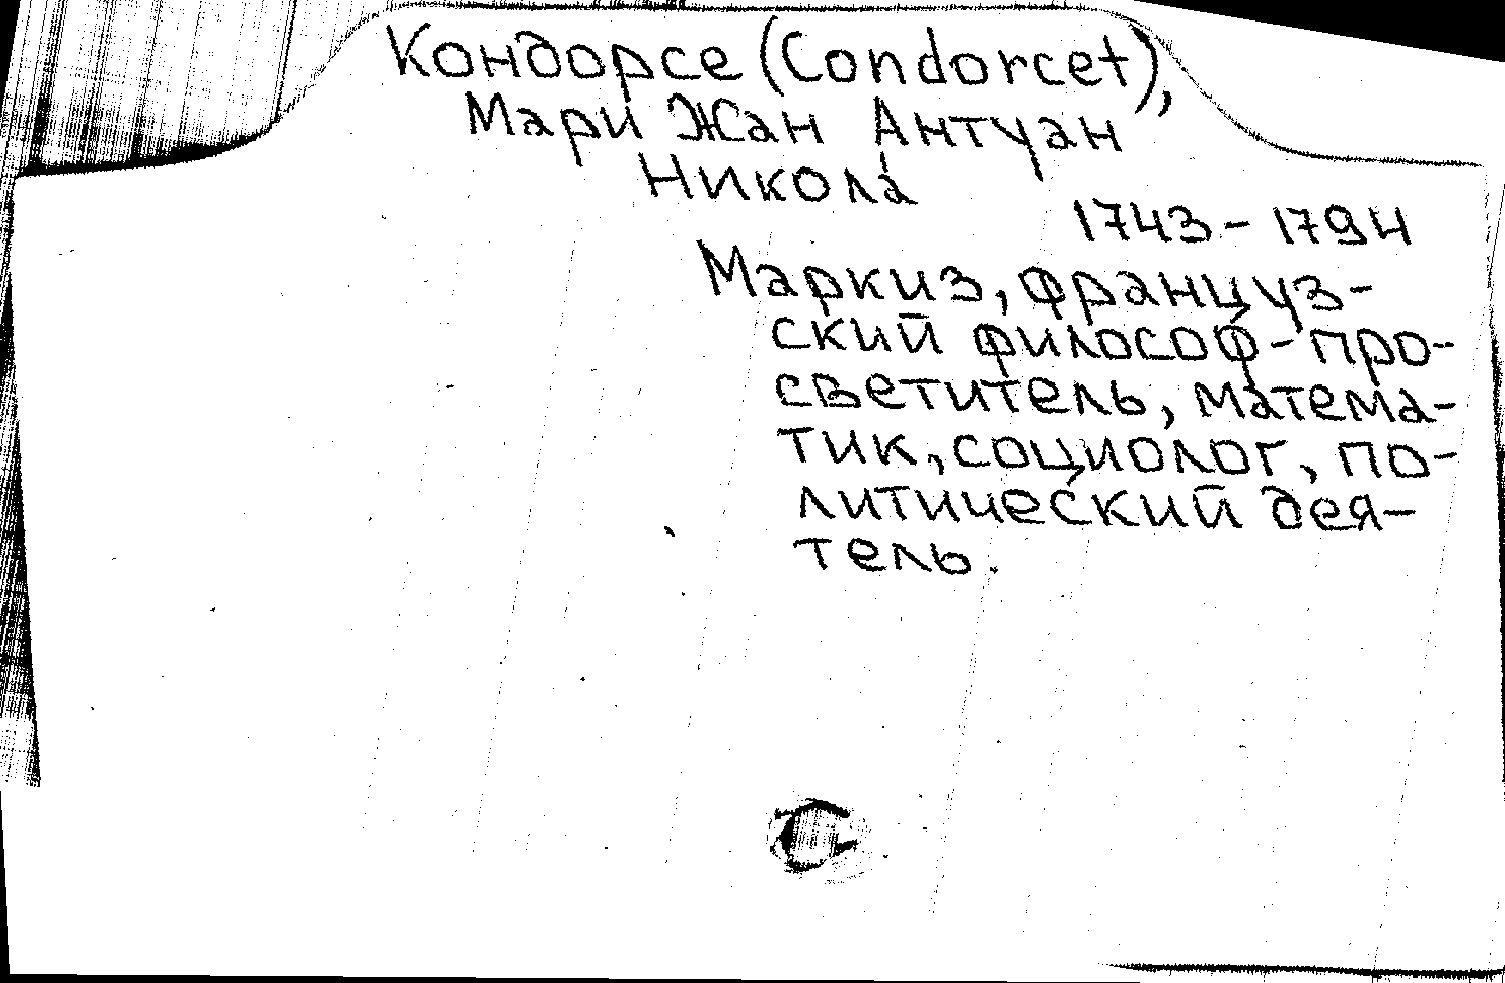 Кондорсе (Condorcet),
Мари Жан Антуан
Никола
1743-1794
Маркиз, француз-
ский философ-про-
светитель, матема-
тик, социолог, по-
литический дея-
тель.